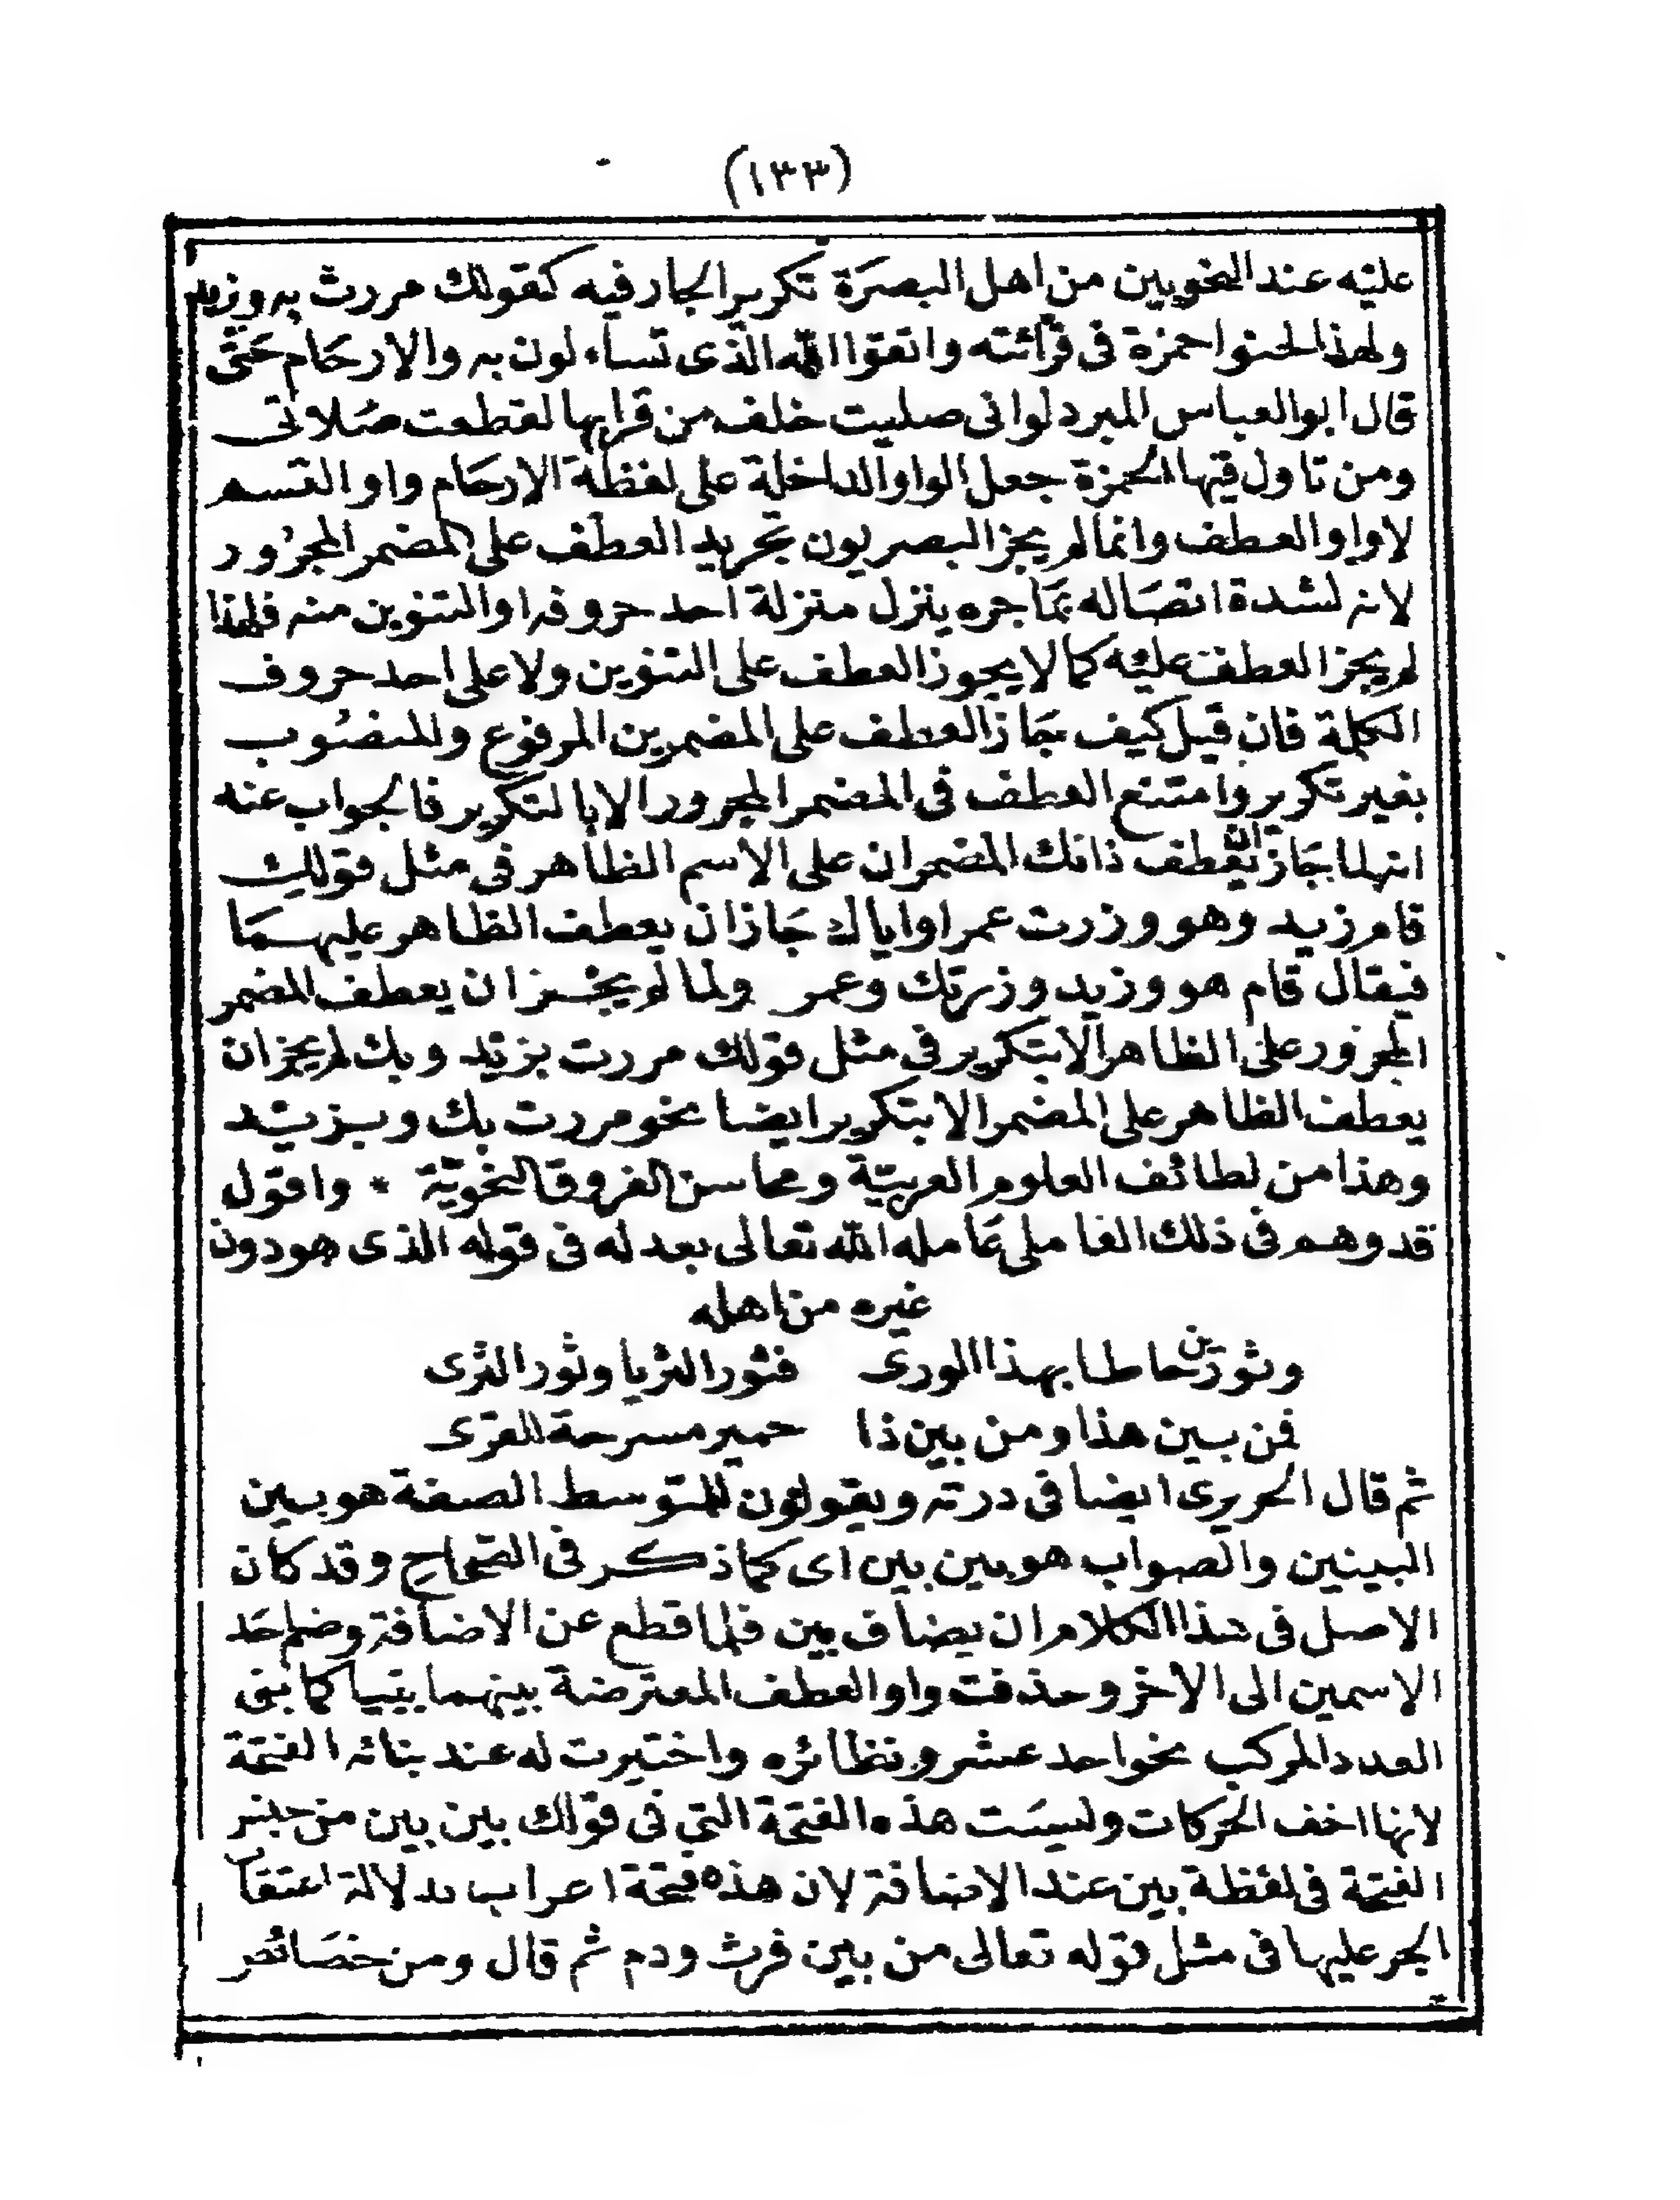 (١٣٣)
عليه عند النحويين من اهل البصرة تكرير الجار فيه كقولك مررت به وزيد
ولهذا لحنوا حمزة فى قرائته واتقوا الله الذى تساءلون به والارحام حتى
قال ابو العباس المبرد لو انى صليت خلف من قرابها لقطعت صلاتى
ومن تاول فيها لحمزة جعل الواو الداخلة على لفظة الارحام واو القسم
لا واو العطف وانما لم يجز البصريون تجريد العطف على المضمر المجرور
لانه لشدة اتصاله بما جره ينزل منزلة احد حروفه او التنوين منه فلهذا
لم يجز العطف عليه كما لا يجوز العطف على التنوين ولا على احد حروف
الكلمة فان قيل كيف جاز العطف على المضمرين المرفوع والمنصوب
بغير تكرير وامتنع العطف فى المضمر المجرور الا بالتكرير فالجواب عنه
انه لما جاز ان يعطف ذانك المضمران على الاسم الظاهر فى مثل قولك
قام زيد وهو وزرت عمرا واياك جاز ان يعطف الظاهر عليهما
فيقال قام هو وزيد وزرتك وعمر ولما لم يجز ان يعطف المضمر
المجرور على الظاهر الا بتكرير فى مثل قولك مررت بزيد وبك لم يجز ان
يعطف الظاهر على المضمر الا بتكرير ايضا نحو مررت بك وبزيد
وهذا من لطائف العلوم العربية ومحاسن الفروق النحوية * واقول
قد وهم فى ذلك الفاملى عامله الله تعالى بعدله فى قوله الذى هو دون
غيره من اهله
وثورين حاطا بهذا الورى فثور الثريا وثور الثرى
فمن بين هذا ومن بين ذا حمير مسرحة للقرى
ثم قال الحريرى ايضا فى درته ويقولون للمتوسط الصفة هو بين
البينين والصواب هو بين بين اى كما ذكر فى الصحاح وقد كان
الاصل فى هذا الكلام ان يضاف بين فلما قطع عن الاضافة وضم احد
الاسمين الى الاخر وحذفت واو العطف المعترضة بينهما بنيا كما بنى
العدد المركب نحو احد عشر ونظائره واختيرت له عند بنائه الفتحة
لانها اخف الحركات وليست هذه الفتحة التي فى قولك بين بين من جنس
الفتحة فى لفظة بين عند الاضافة لان هذه فتحة اعراب بدلالة اعتقاب
الجر عليها فى مثل قوله تعالى من بين فرث ودم ثم قال ومن خصائص